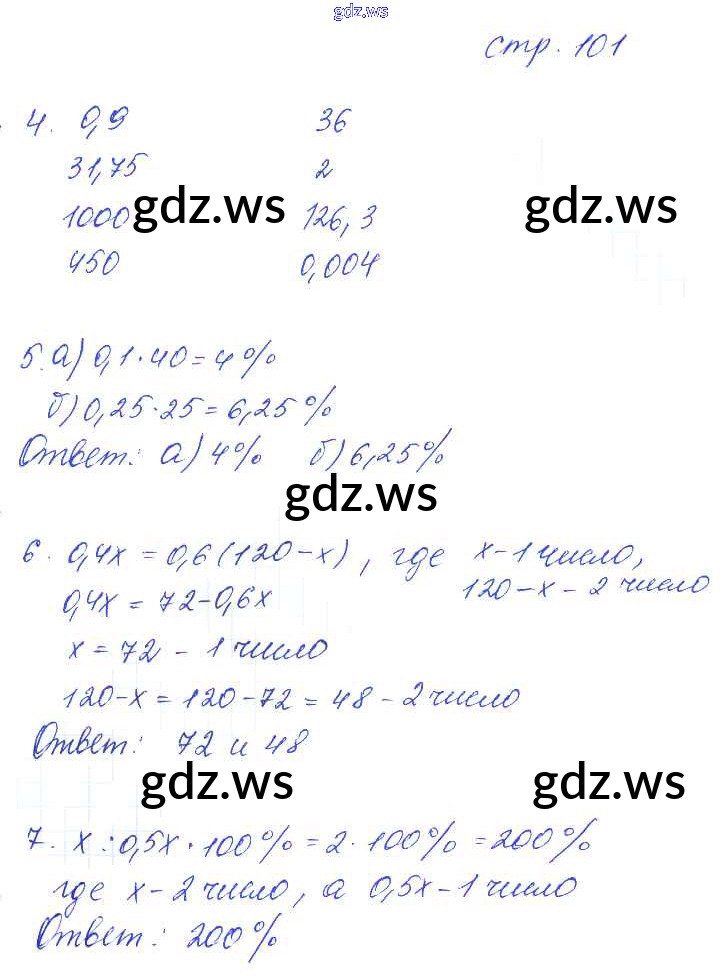 gdz.ws
стр. 101
4. 0,9 36
31,75 2
1000 126,3
gdz.ws gdz.ws
450 0,004
5. а) 0,1·40=4%
б) 0,25·25=6,25%
Ответ: а) 4% б) 6,25%
gdz.ws
6. 0,4x=0,6(120-x), где x-1 число,
120-x-2 число
0,4x=72-0,6x
x=72-1 число
120-x=120-72=48-2 число
Ответ: 72 и 48
gdz.ws gdz.ws
7. x:0,5x·100%=2·100%=200%
где x-2 число, а 0,5x-1 число
Ответ: 200%